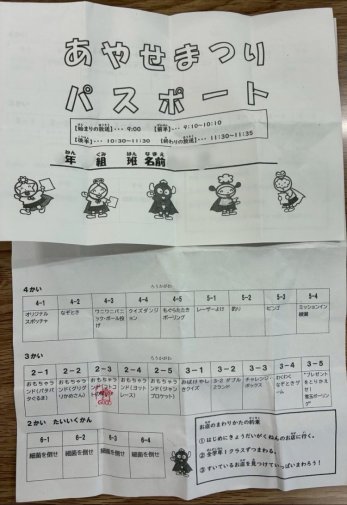 あやせまつり
パスポート
【始まりの放送】・・・9:00 【前半】・・・9:10~10:10
【後半】・・・10:30~11:30 【終わりの放送】・・・11:30~11:35
年 組 班 名前
4かい
4-1 4-2 4-3 4-4 4-5 5-1 5-2 5-3 5-4
オリジナルスポッチャ なぞとき ワニワニパニック・ボール投げ クイズダンジョン もぐらたたきボーリング レーザーよけ 釣り ビンゴ ミッションイン
3かい
2-1 2-2 2-3 2-4 2-5 3-1 3-2 3-3 3-4 3-5
おもちゃランド(パタパタぐるま) おもちゃランド おもちゃランド おもちゃランド(ヨットレース) おもちゃランド おばけやしきクイズ 3-2 ダブル2ランド チャレンジ・ボックス わくわくなぞときゲーム プレゼントをとりかえせ!
2かい たいいくかん
6-1 6-2 6-3 6-4
細菌を倒せ 細菌を倒せ 細菌を倒せ 細菌を倒せ
お店のまわりかたの約束
① はじめにきょうだいがくねんのお店に行く。
② 全学年1クラスずつまわる。
③ すいているお店を見つけていっぱいまわろう!